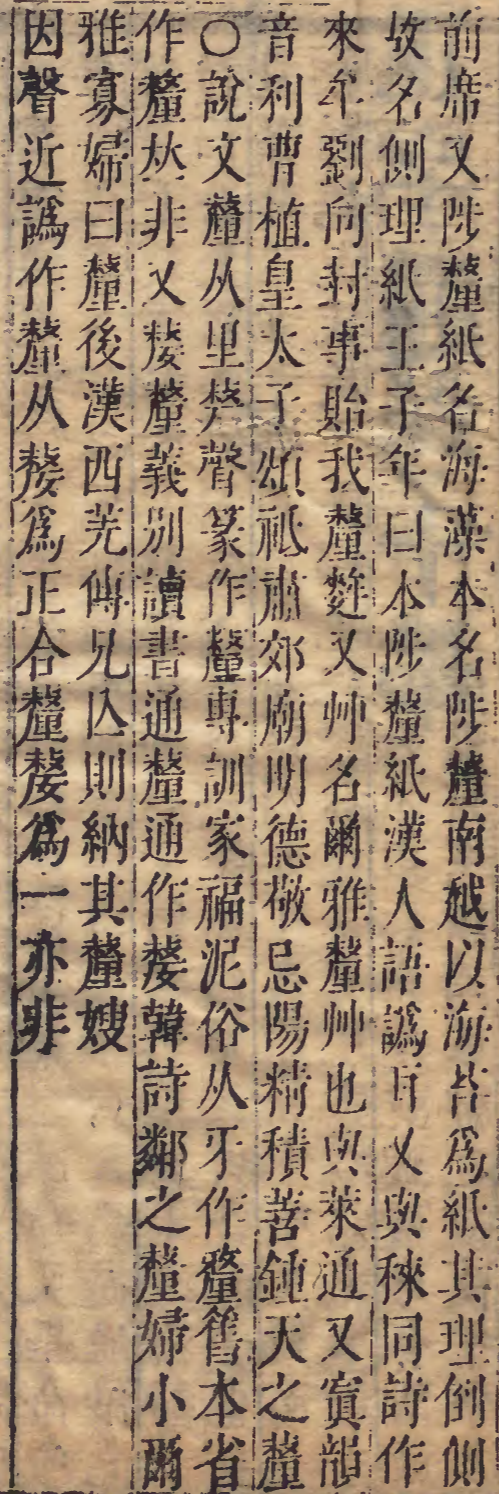 前席又陟釐紙名海藻本名陟釐南越以海苔爲紙其理倒側
故名側理紙王子年曰本陟釐紙漢人語譌耳又與秾同詩作
來牟劉向封事貽我釐麰又艸名爾雅釐艸也與萊通又寘韻
音利曹植皇太子頌祗肅郊廟明德敬忌陽精積善鍾天之釐
○說文釐从里𠩺聲篆作釐專訓家福泥俗从牙作釐舊本省
作釐𠀤非又嫠釐義別讀書通釐通作嫠韓詩鄰之釐婦小爾
雅寡婦曰釐後漢西羌傳兄亾則納其釐嫂
因聲近譌作釐从嫠爲正合釐嫠爲一亦非